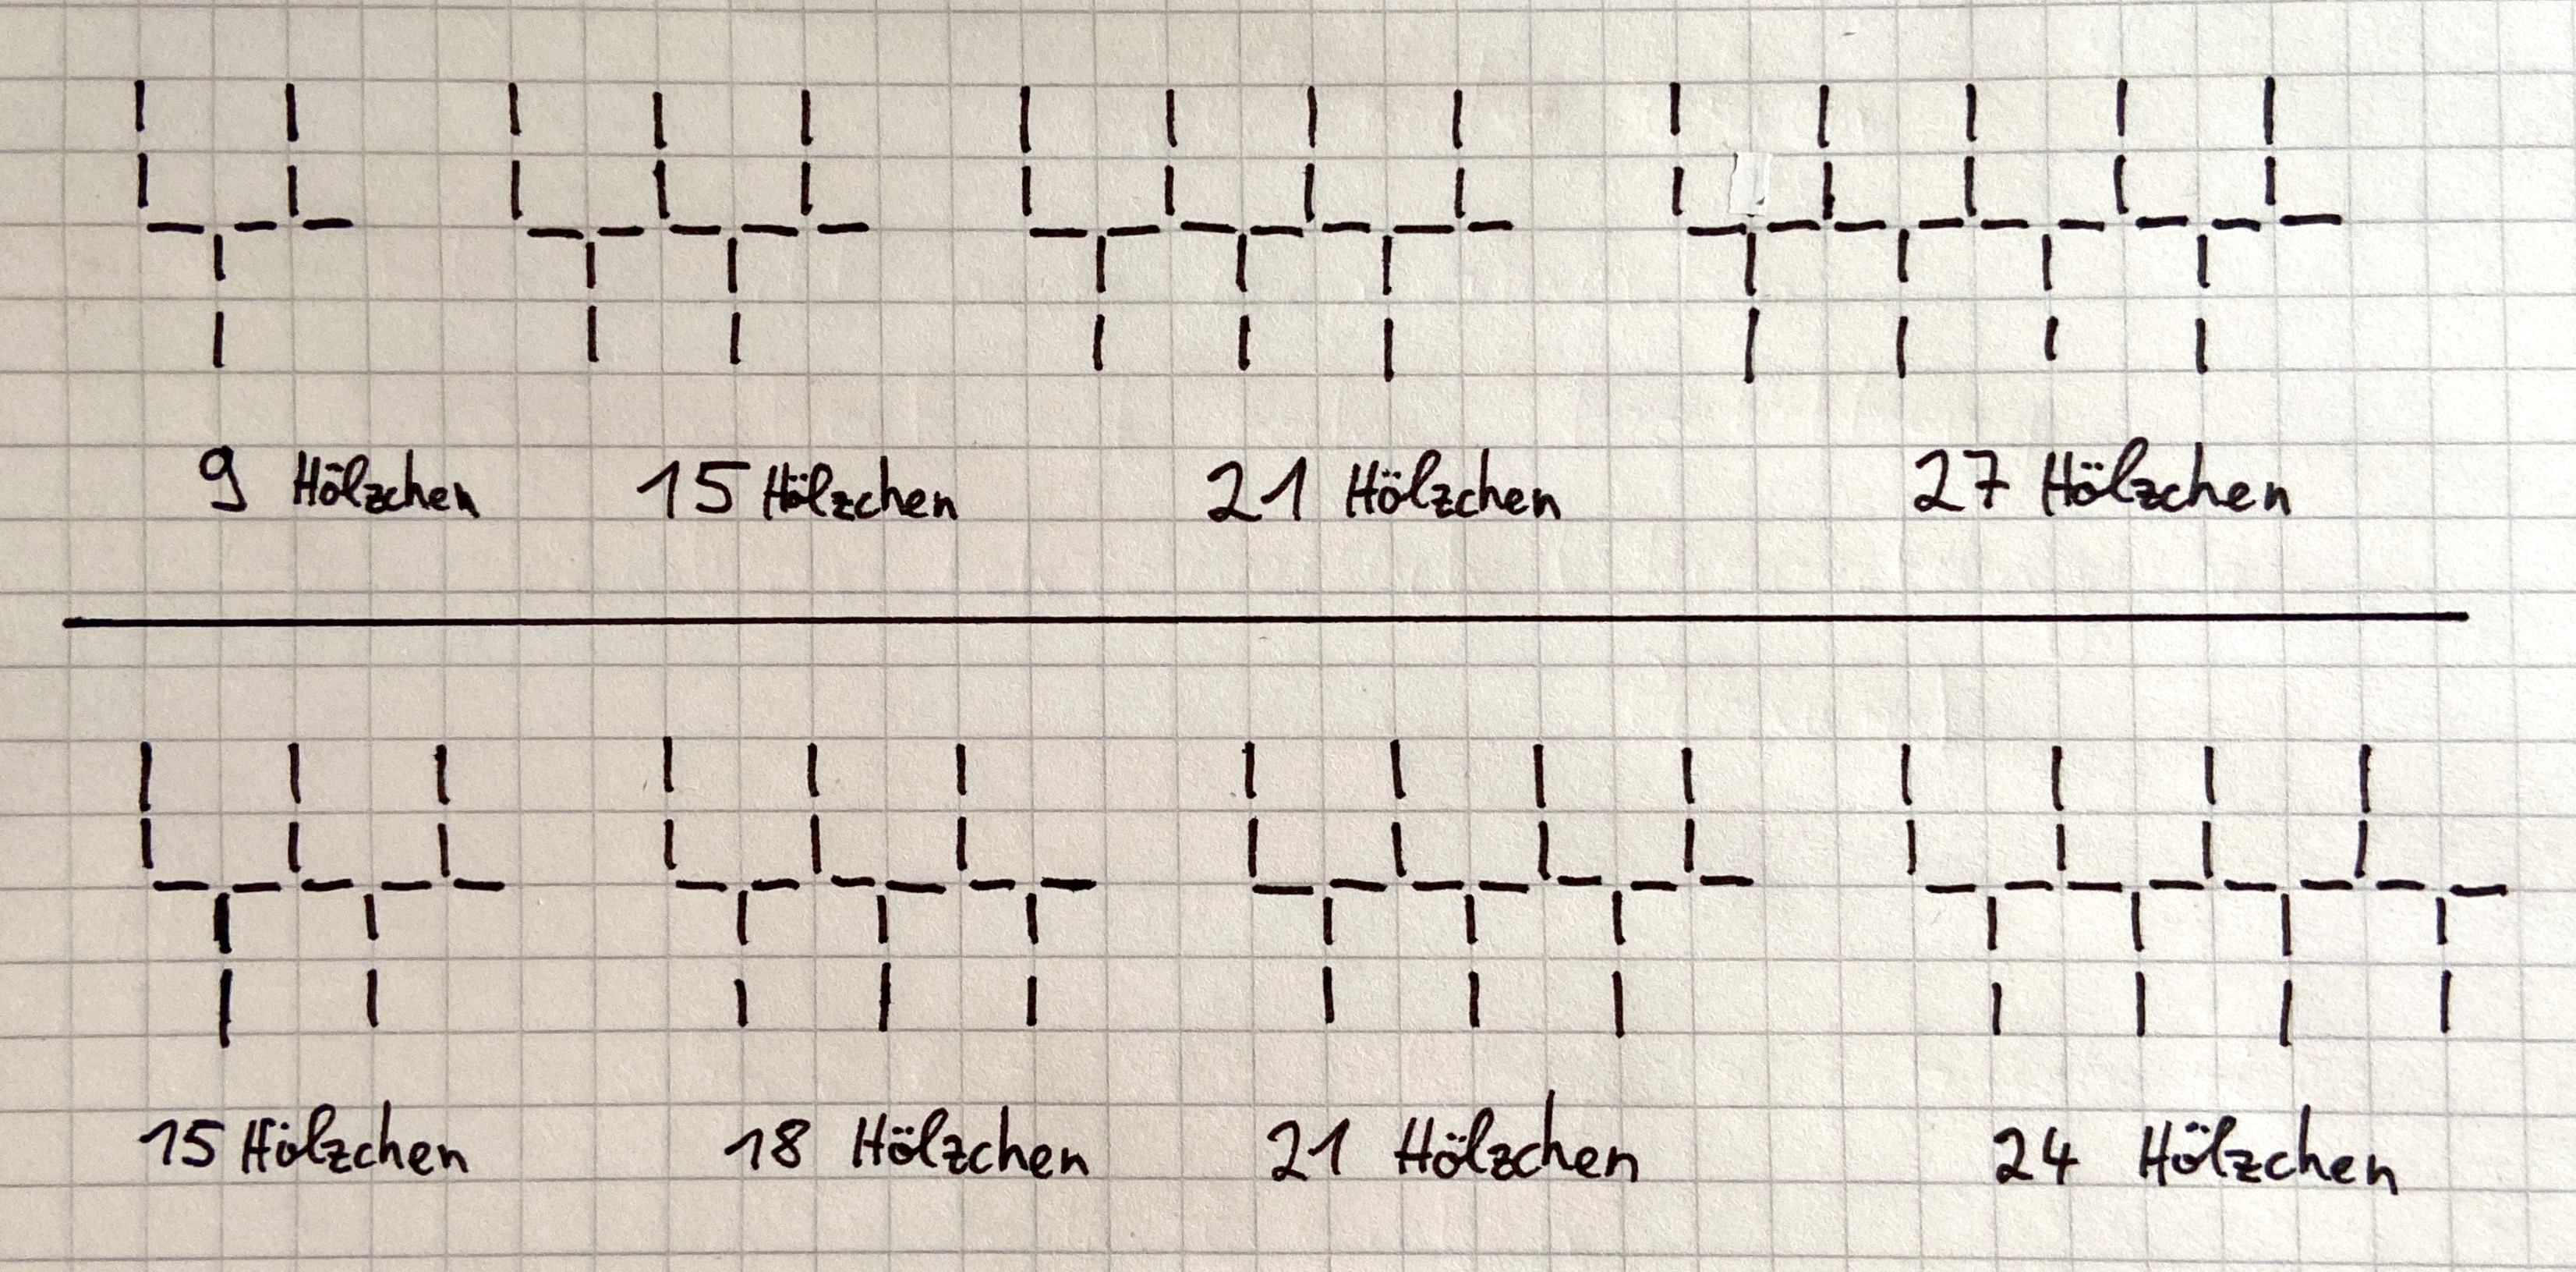 9 Hölzchen 15 Hölzchen 21 Hölzchen 27 Hölzchen
15 Hölzchen 18 Hölzchen 21 Hölzchen 24 Hölzchen